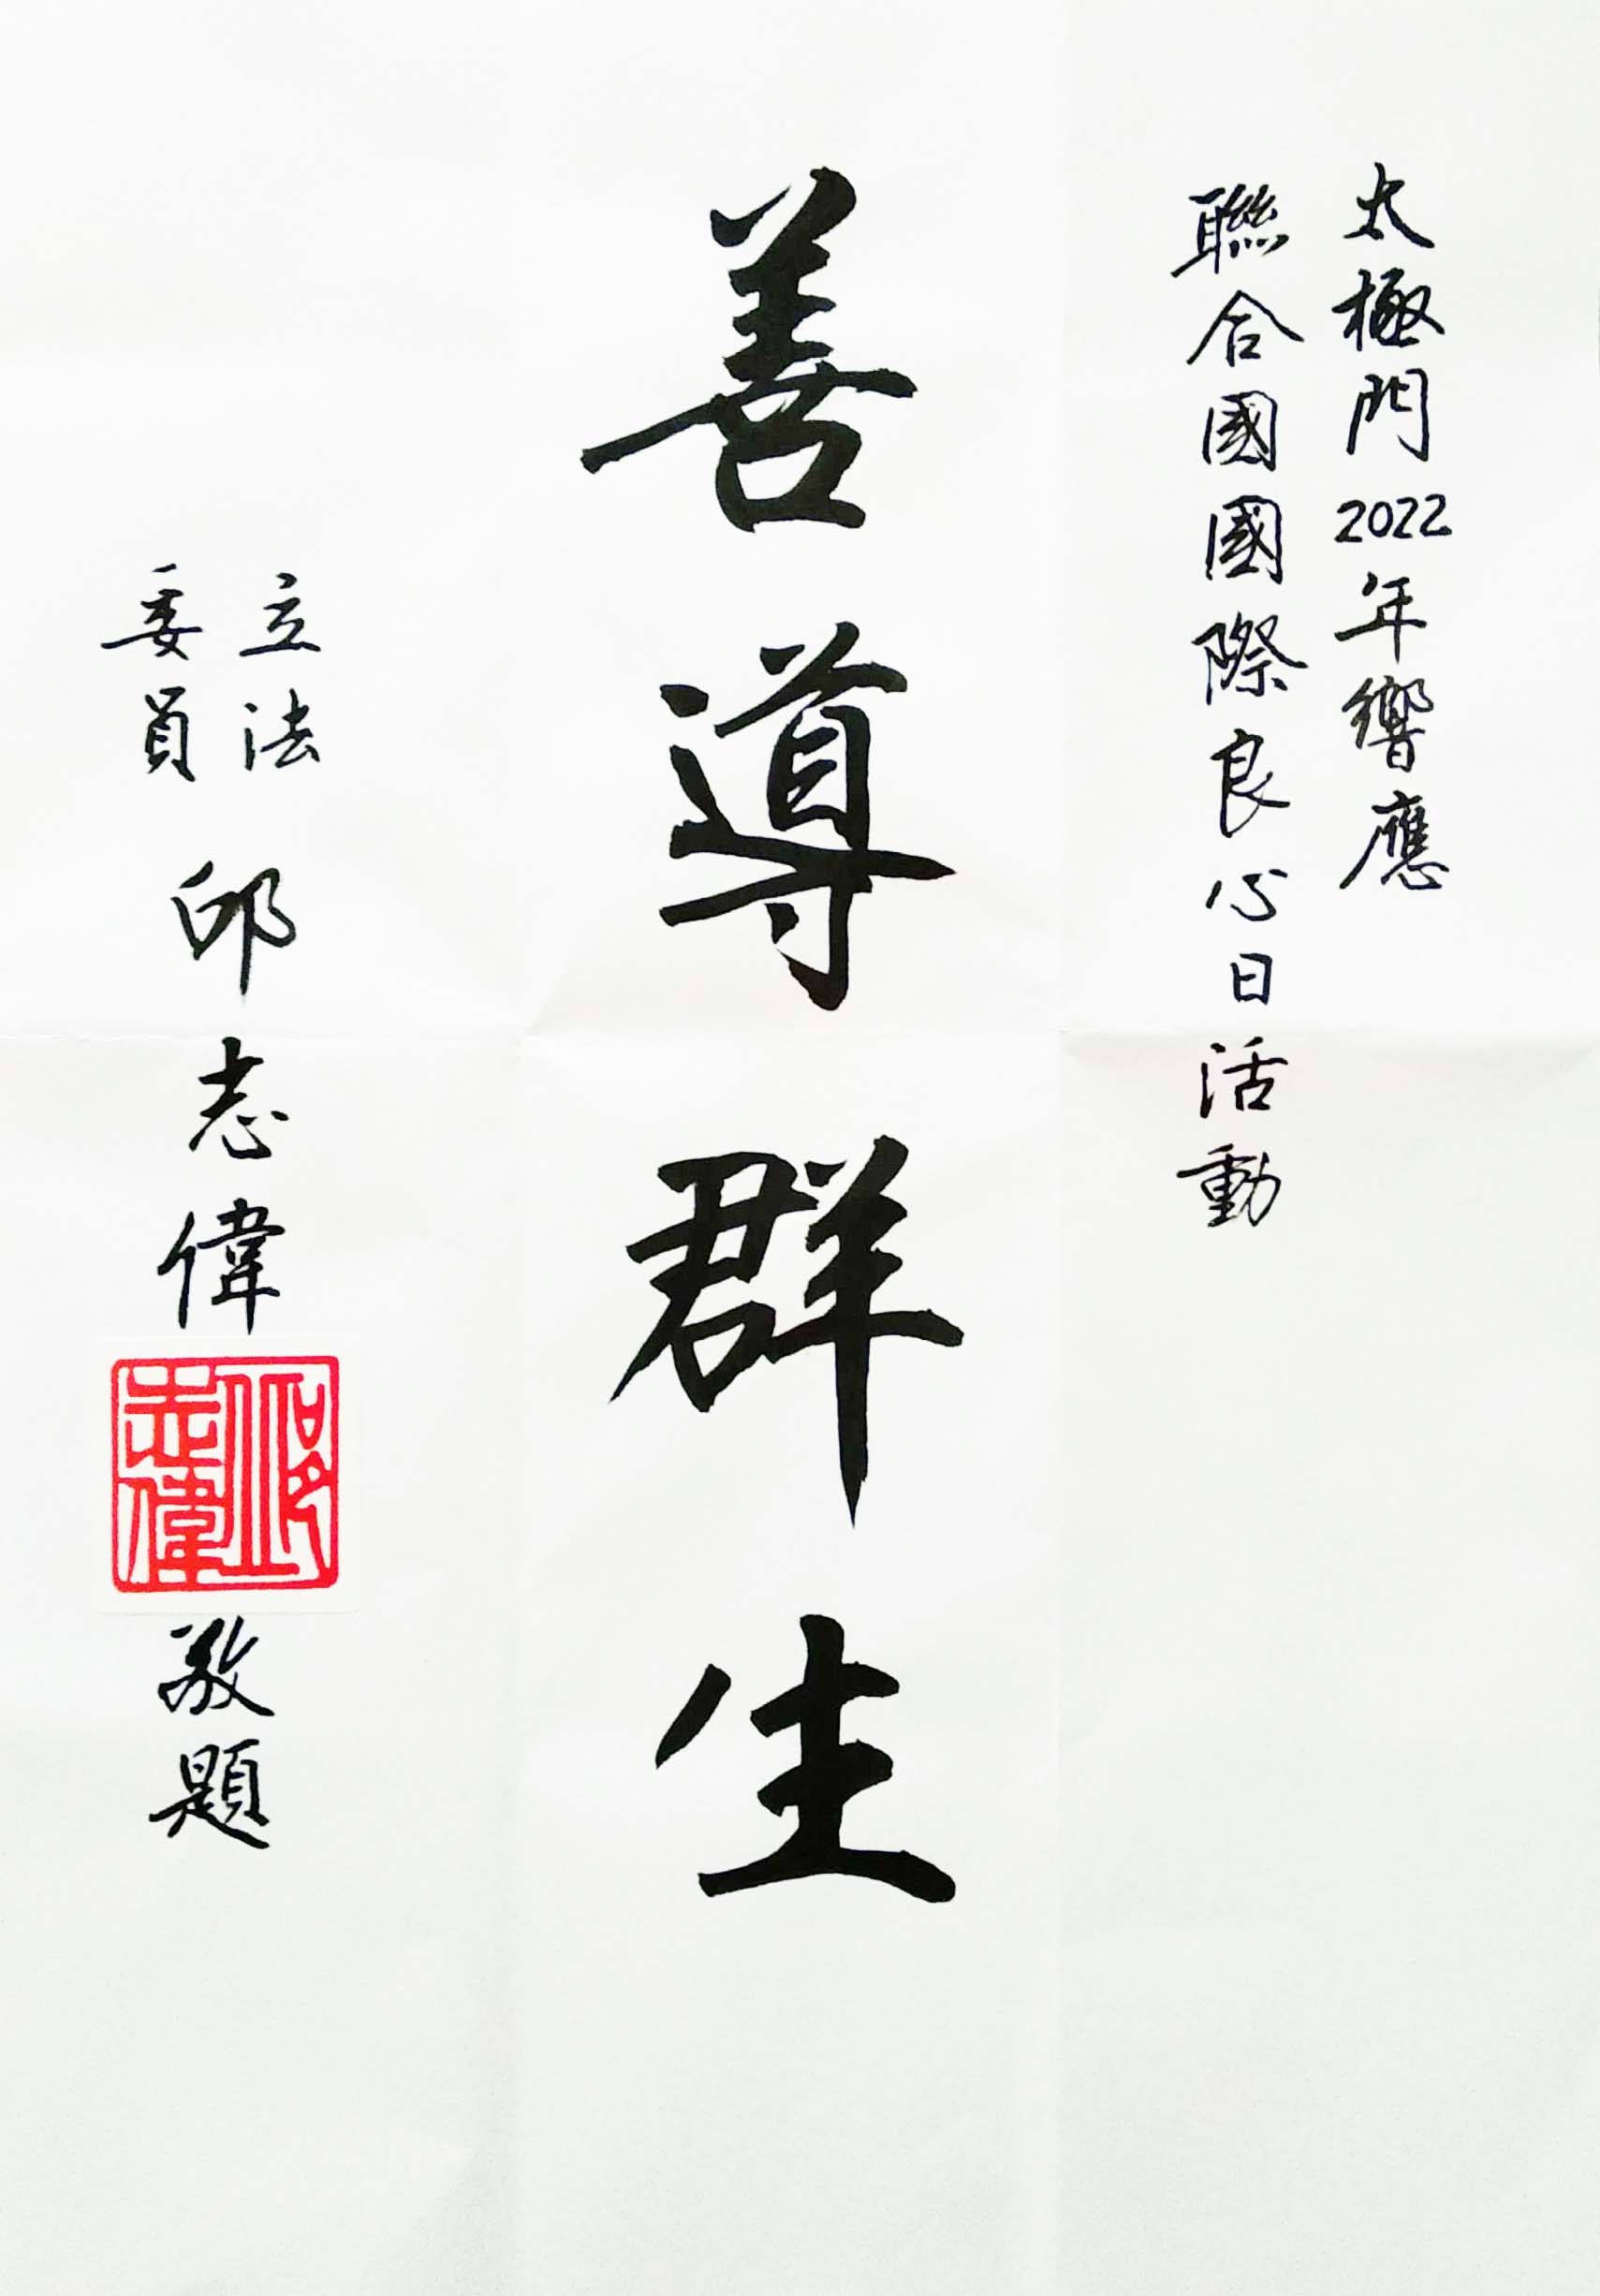 太極門2022年響應
聯合國國際良心日活動
善導群生
立法
委員
邱志偉
邱志偉印
敬題